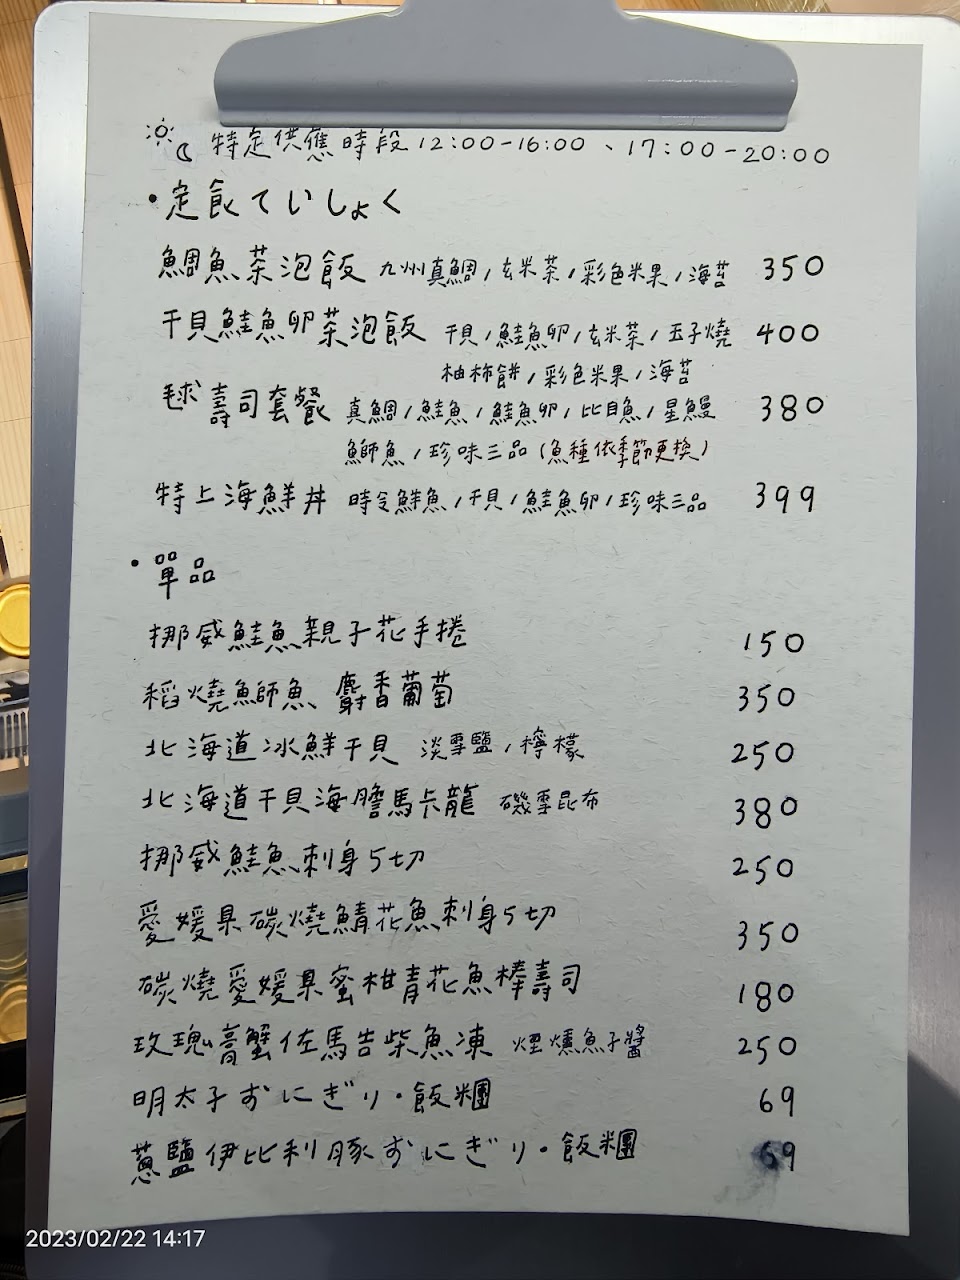 特定供應時段 12:00-16:00、17:00-20:00
·定食ていしょく
鯛魚茶泡飯 九州真鯛/玄米茶/彩色米果/海苔 350
干貝鮭魚卵茶泡飯 干貝/鮭魚卵/玄米茶/玉子燒 400
柚柿餅/彩色米果/海苔
毬壽司套餐 真鯛/鮭魚/鮭魚卵/比目魚/星鰻 380
鰤魚/珍味三品(魚種依季節更換)
特上海鮮丼 時令鮮魚/干貝/鮭魚卵/珍味三品 399
·單品
挪威鮭魚親子花手捲 150
稻燒鰤魚、麝香葡萄 350
北海道冰鮮干貝 淡雪鹽/檸檬 250
北海道干貝海膽馬卡龍 磯雪昆布 380
挪威鮭魚刺身5切 250
愛媛県碳燒鯖花魚刺身5切 350
碳燒愛媛県蜜柑青花魚棒壽司 180
玫瑰膏蟹佐馬告柴魚凍 煙燻魚子醬 250
明太子おにぎり·飯糰 69
蔥鹽伊比利豚おにぎり·飯糰 69
2023/02/22 14:17